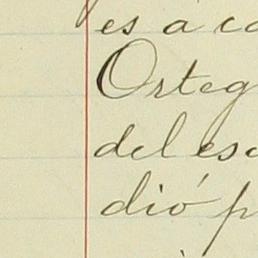 es a co
Orteg
del esc
dió p